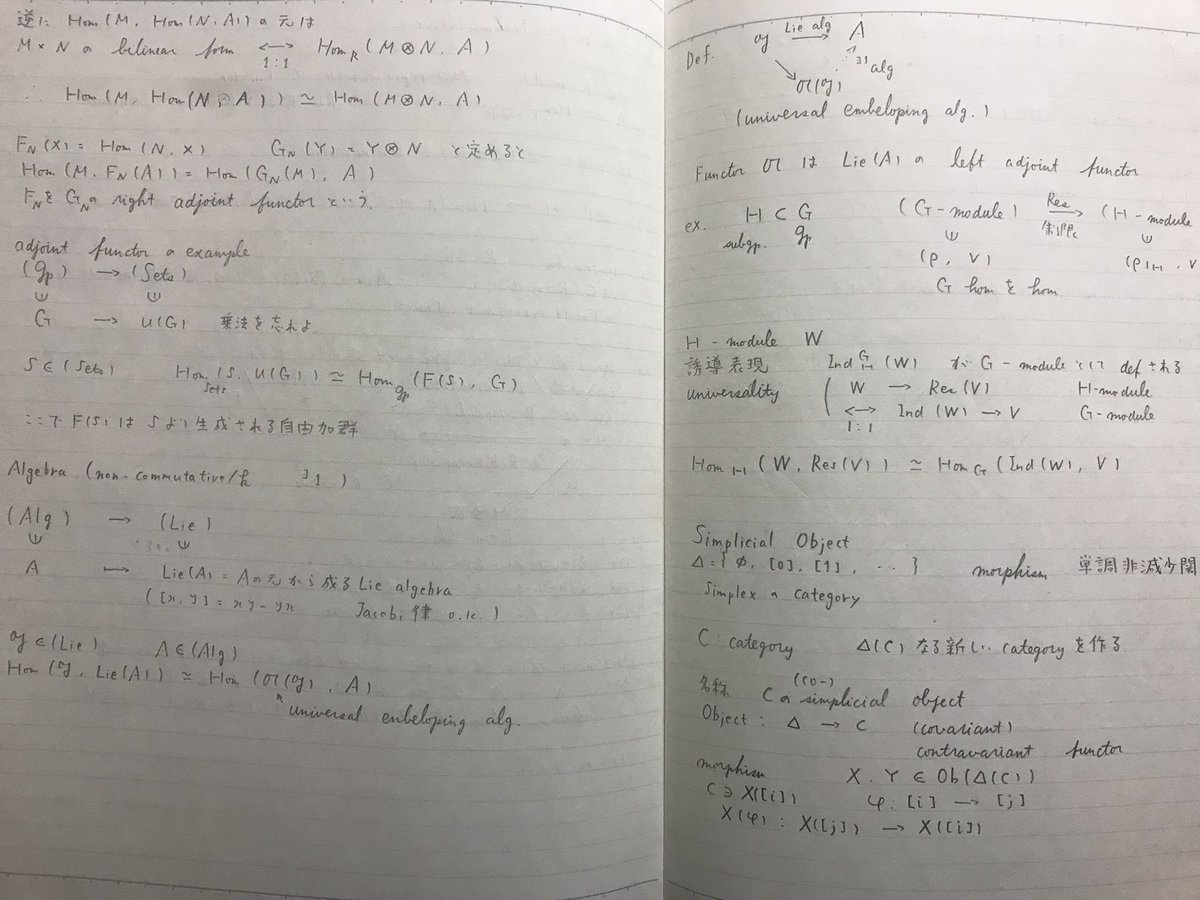 逆に Hom (M, Hom (N, A)) の元は
M × N の belinear form ⟷ Hom_R (M ⊗ N, A)
1:1
∴ Hom (M, Hom (N, A)) ≃ Hom (M ⊗ N, A)
F_N (X) = Hom (N, X) G_N (Y) = Y ⊗ N と定めると
Hom (M, F_N (A)) = Hom (G_N (M), A)
F_N を G_N の right adjoint functor という.
adjoint functor の example
(gp) → (Sets)
G → U(G) 乗法を忘れよ
S ∈ (Sets) Hom_Sets (S, U(G)) ≃ Hom_gp (F(S), G)
ここで F(S) は S より生成される自由加群
Algebra (non-commutative/k ∃1)
(Alg) → (Lie)
A ⟼ Lie(A) = A の元から成る Lie algebra
([x, y] = xy - yx Jacobi 律 o.k.)
𝔤 ∈ (Lie) A ∈ (Alg)
Hom (𝔤, Lie (A)) ≃ Hom (𝔘(𝔤), A)
universal enbeloping alg.
Def. 𝔤 Lie alg → A
∃1 alg
𝔘(𝔤)
(universal embeloping alg.)
Functor 𝔘 は Lie (A) の left adjoint functor
ex. H ⊂ G (G-module) Res → (H-module
subgp. gp 制限
(ρ, V) (ρ|H, V
G hom を hom
H - module W
誘導表現 Ind^G_H (W) が G - module として def される
universality ( W → Res (V) H-module
⟷ Ind (W) → V G-module
1:1
Hom_H (W, Res (V)) ≃ Hom_G (Ind (W), V)
Simplicial Object
Δ = { ∅, [0], [1], ... } morphism 単調非減少関
Simplex の category
C : category Δ(C) なる新しい category を作る
(co-)
名称 C の simplicial object
Object : Δ → C (covariant)
contravariant functor
morphism X, Y ∈ Ob (Δ(C))
C ∋ X([i]) φ : [i] → [j]
X(φ) : X([j]) → X([i])